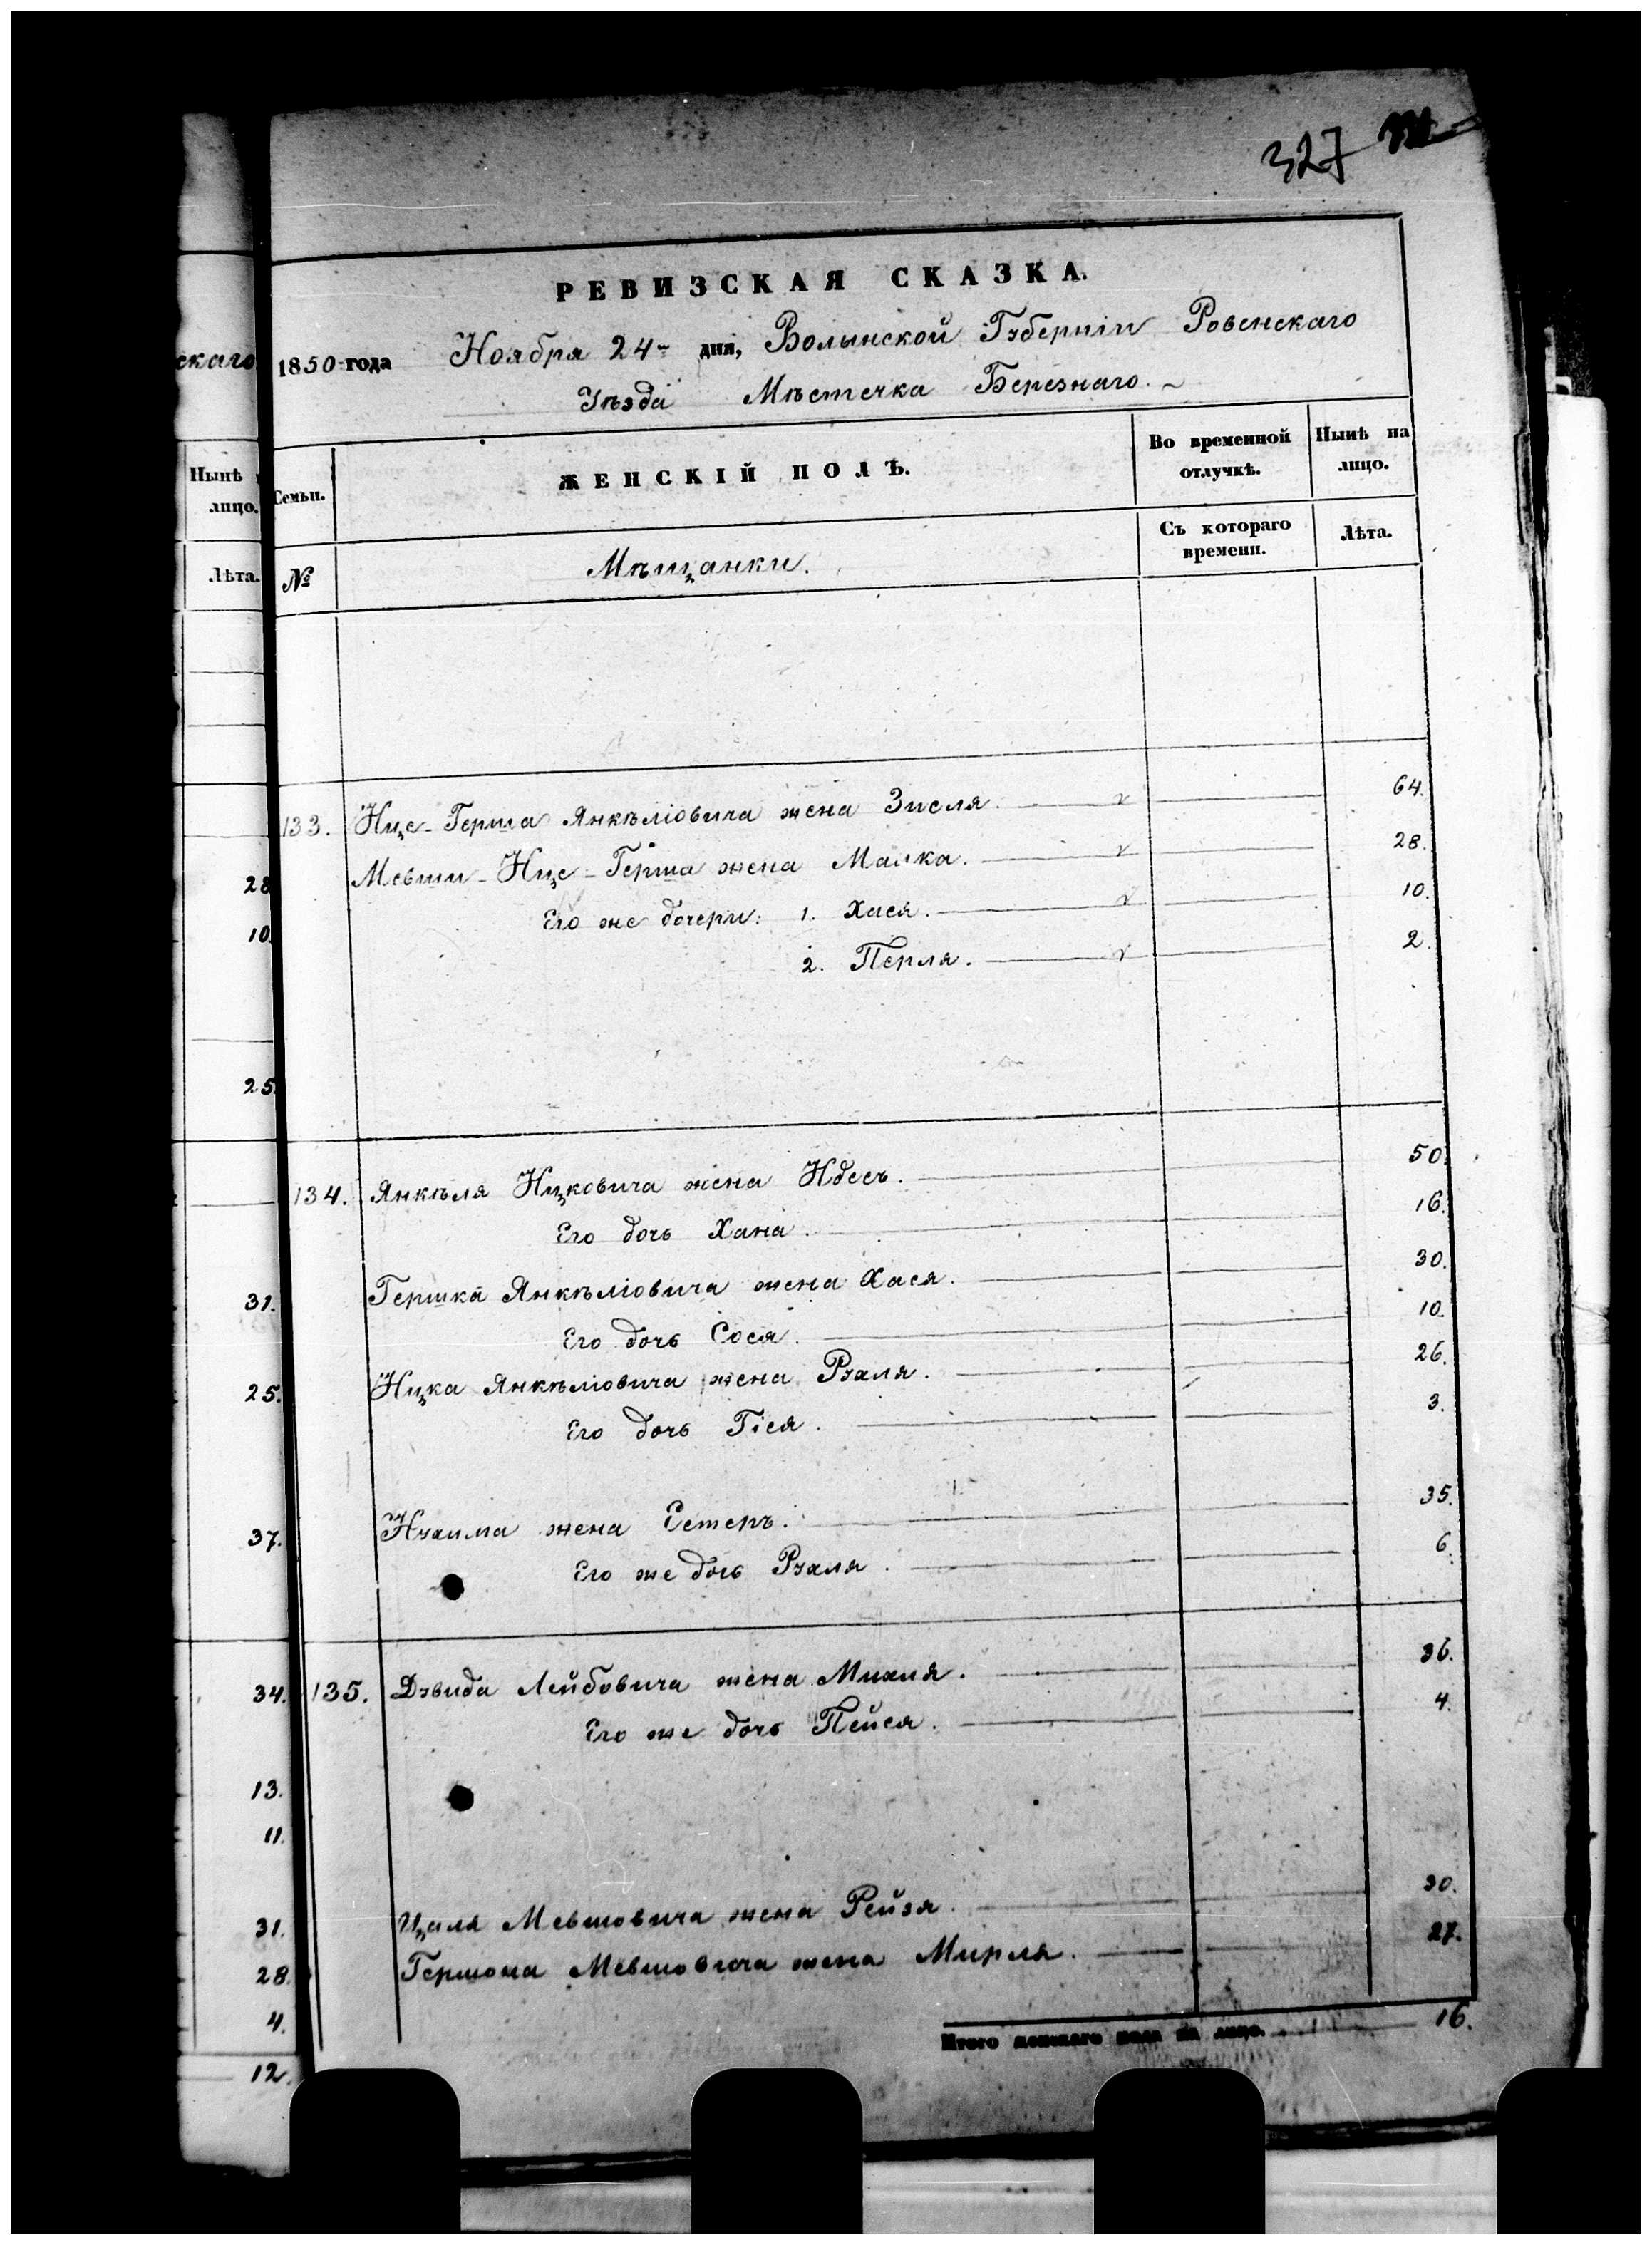 327
РЕВИЗСКАЯ СКАЗКА.
скаго
1850 года Ноября 24 дня, Волынской Губерніи Ровенскаго
Уѣзда Мѣстечка Березнаго.
Нынѣ
лицо.
Лѣта.
Семьи.
№
ЖЕНСКІЙ ПОЛЪ.
Мѣщанки.
Во временной отлучкѣ.
Съ котораго времени.
Нынѣ на лицо.
Лѣта.
133. Ице-Герша Янкѣліовича жена Зисля. 64.
Мевши-Ице-Герша жена Малка. 28.
Его же дочери: 1. Хася. 10.
2. Перля. 2.
134. Янкѣля Ицковича жена Идесъ. 50.
Его дочь Хана. 16.
Гершка Янкѣліовича жена Хася. 30.
Его дочь Сося. 10.
Ицка Янкѣліовича жена Рухля. 26.
Его дочь Гіся. 3.
Нухима жена Естеръ. 35.
Его же дочь Рухля. 6.
135. Дувида Лейбовича жена Михля. 36.
Его же дочь Пейся. 4.
Цаля Мевшовича жена Рейзя. 30.
Гершона Мевшовича жена Мирля. 27.
Итого женскаго пола на лицо. 16.
28
10.
25
31.
25.
37.
34.
13.
11.
31.
28
4.
12.